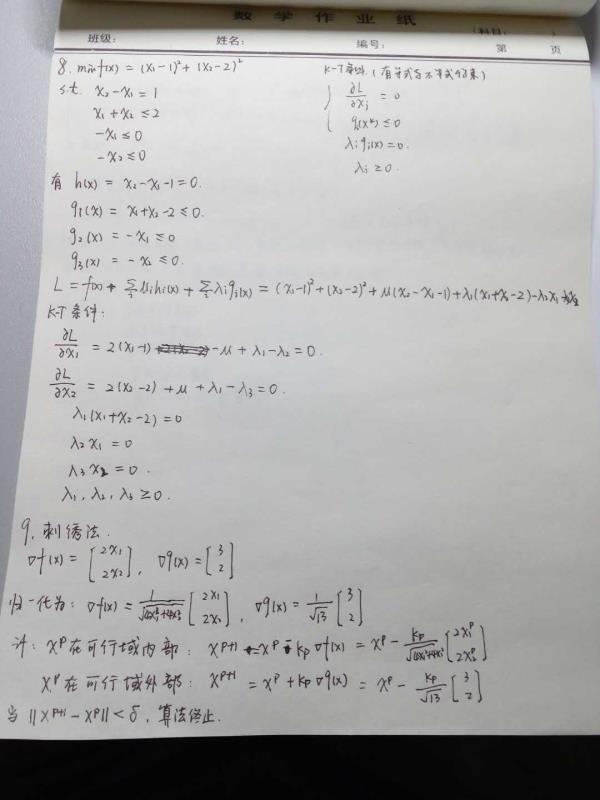 数学作业纸
班级: 姓名: 编号: (科目: ) 第 页
8. min f(x) = (x₁-1)² + (x₂-2)²
s.t. x₂-x₁ = 1
x₁+x₂ ≤ 2
-x₁ ≤ 0
-x₂ ≤ 0
K-T条件. (有等式与不等式约束)
∂L/∂xⱼ = 0
gᵢ(x*) ≤ 0
λᵢgᵢ(x) = 0.
λᵢ ≥ 0.
有 h(x) = x₂-x₁-1 = 0.
g₁(x) = x₁+x₂-2 ≤ 0.
g₂(x) = -x₁ ≤ 0
g₃(x) = -x₂ ≤ 0.
L = f(x) + Σμᵢhᵢ(x) + Σλᵢgᵢ(x) = (x₁-1)² + (x₂-2)² + μ(x₂-x₁-1) + λ₁(x₁+x₂-2) - λ₂x₁
K-T条件:
∂L/∂x₁ = 2(x₁-1) - μ + λ₁ - λ₂ = 0.
∂L/∂x₂ = 2(x₂-2) + μ + λ₁ - λ₃ = 0.
λ₁(x₁+x₂-2) = 0
λ₂x₁ = 0
λ₃x₂ = 0.
λ₁, λ₂, λ₃ ≥ 0.
9. 刺绣法.
∇f(x) = [2x₁ 2x₂], ∇g(x) = [3 2]
归一化为: ∇f(x) = 1/√(4x₁²+4x₂²) [2x₁ 2x₂], ∇g(x) = 1/√13 [3 2]
xᵖ在可行域内部: xᵖ⁺¹ = xᵖ - kₚ∇f(x) = xᵖ - kₚ/√(4x₁²+4x₂²) [2x₁ᵖ 2x₂ᵖ]
xᵖ在可行域外部: xᵖ⁺¹ = xᵖ + kₚ∇g(x) = xᵖ - kₚ/√13 [3 2]
当 ||xᵖ⁺¹ - xᵖ|| < δ, 算法终止.